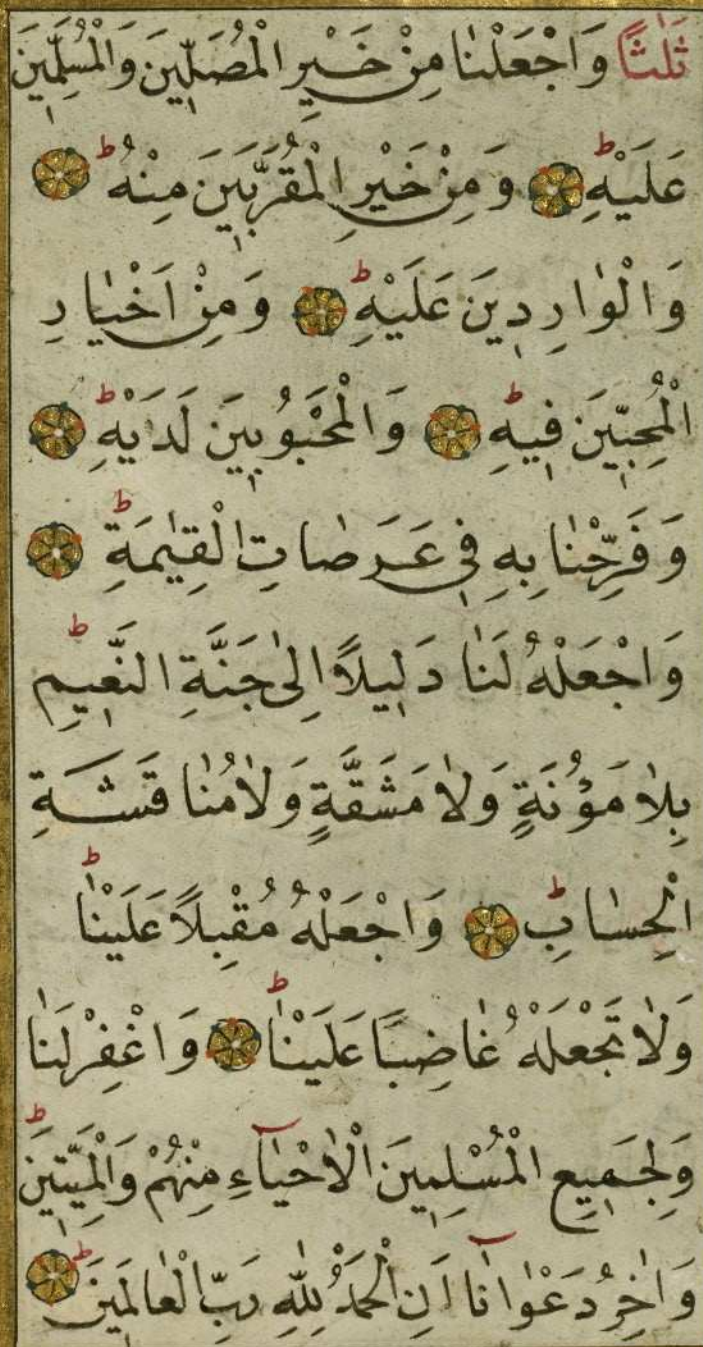 ثَلٰثًا وَاجْعَلْنٰا مِنْ خَيْرِ الْمُصَلّٖينَ وَالْمُسَلِّمٖينَ
عَلَيْهِ ط وَمِنْ خَيْرِ الْمُقَرَّبٖينَ مِنْهُ ط
وَالْوٰارِدٖينَ عَلَيْهِ ط وَمِنْ اَخْيٰارِ
الْمُحِبّٖينَ فٖيهِ ط وَالْمَحْبُوبٖينَ لَدَيْهِ ط
وَفَرِّحْنٰا بِهِ فٖى عَرَصٰاتِ الْقِيٰمَةِ ط
وَاجْعَلْهُ لَنٰا دَلٖيلًا اِلٰى جَنَّةِ النَّعٖيمِ ط
بِلٰا مَؤُنَةٍ وَلٰا مَشَقَّةٍ وَلٰا مُنٰاقَشَةِ
الْحِسٰابِ ط وَاجْعَلْهُ مُقْبِلًا عَلَيْنٰا ط
وَلٰا تَجْعَلْهُ غٰاضِبًا عَلَيْنٰا ط وَاغْفِرْ لَنٰا
وَلِجَمٖيعِ الْمُسْلِمٖينَ الْاَحْيٰآءِ مِنْهُمْ وَالْمَيِّتٖينَ ط
وَاٰخِرُ دَعْوٰانٰٓا اَنِ الْحَمْدُ لِلّٰهِ رَبِّ الْعٰالَمٖينَ ط